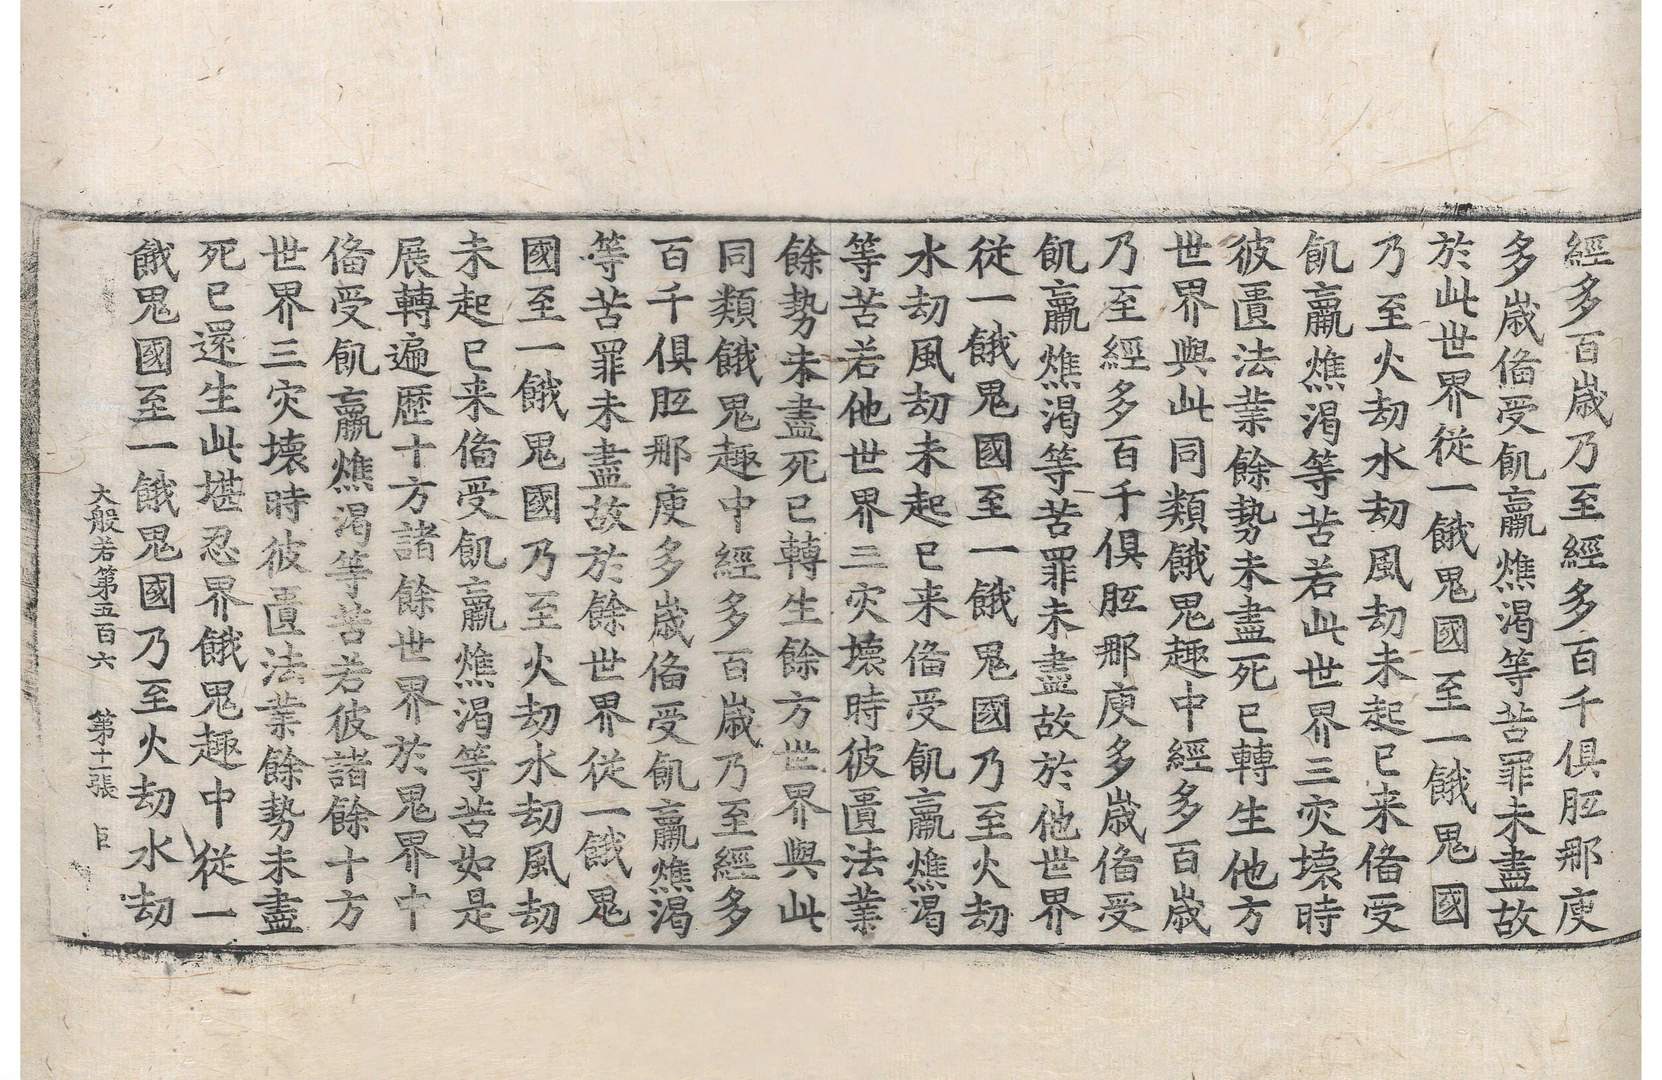 經多百歲乃至經多百千俱胝那庾
多歲俻受飢羸燋渴等苦罪未盡故
於此世界從一餓鬼國至一餓鬼國
乃至火劫水劫風劫未起已来俻受
飢羸燋渴等苦若此世界三灾壞時
彼匱法業餘勢未盡死已轉生他方
世界與此同類餓鬼趣中經多百歲
乃至經多百千俱胝那庾多歲俻受
飢羸燋渴等苦罪未盡故於他世界
從一餓鬼國至一餓鬼國乃至火劫
水劫風劫未起已来俻受飢羸燋渴
等苦若他世界三灾壞時彼匱法業
餘勢未盡死已轉生餘方世界與此
同類餓鬼趣中經多百歲乃至經多
百千俱胝那庾多歲俻受飢羸燋渴
等苦罪未盡故於餘世界從一餓鬼
國至一餓鬼國乃至火劫水劫風劫
未起已来俻受飢羸燋渴等苦如是
展轉遍歷十方諸餘世界於鬼界中
俻受飢羸燋渴等苦若彼諸餘十方
世界三灾壞時彼匱法業餘勢未盡
死已還生此堪忍界餓鬼趣中從一
餓鬼國至一餓鬼國乃至火劫水劫
大般若第五百六 第十一張 巨